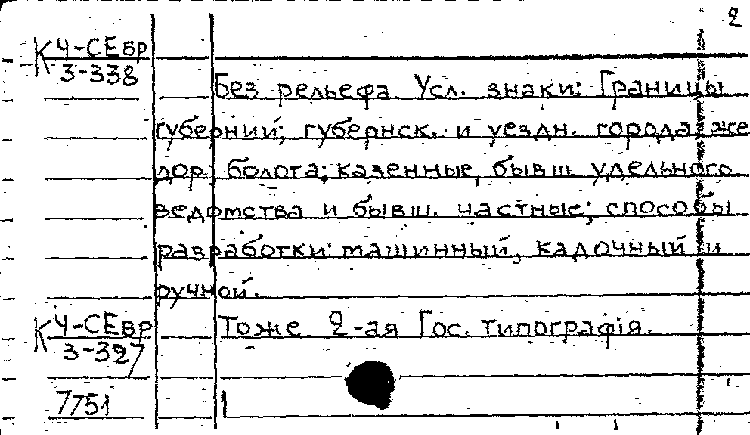 2
К Ч-СЕвр
3-338
Без рельефа. Усл. знаки: Границы
губернии; губернск. и уездн. города: же
дор. болота; казенные, бывш. удельного
ведомства и бывш. частные; способы
разработки: машинный, кадочный и
ручной.
К Ч-СЕвр Тоже 2-ая Гос. типографія.
3-327
7751